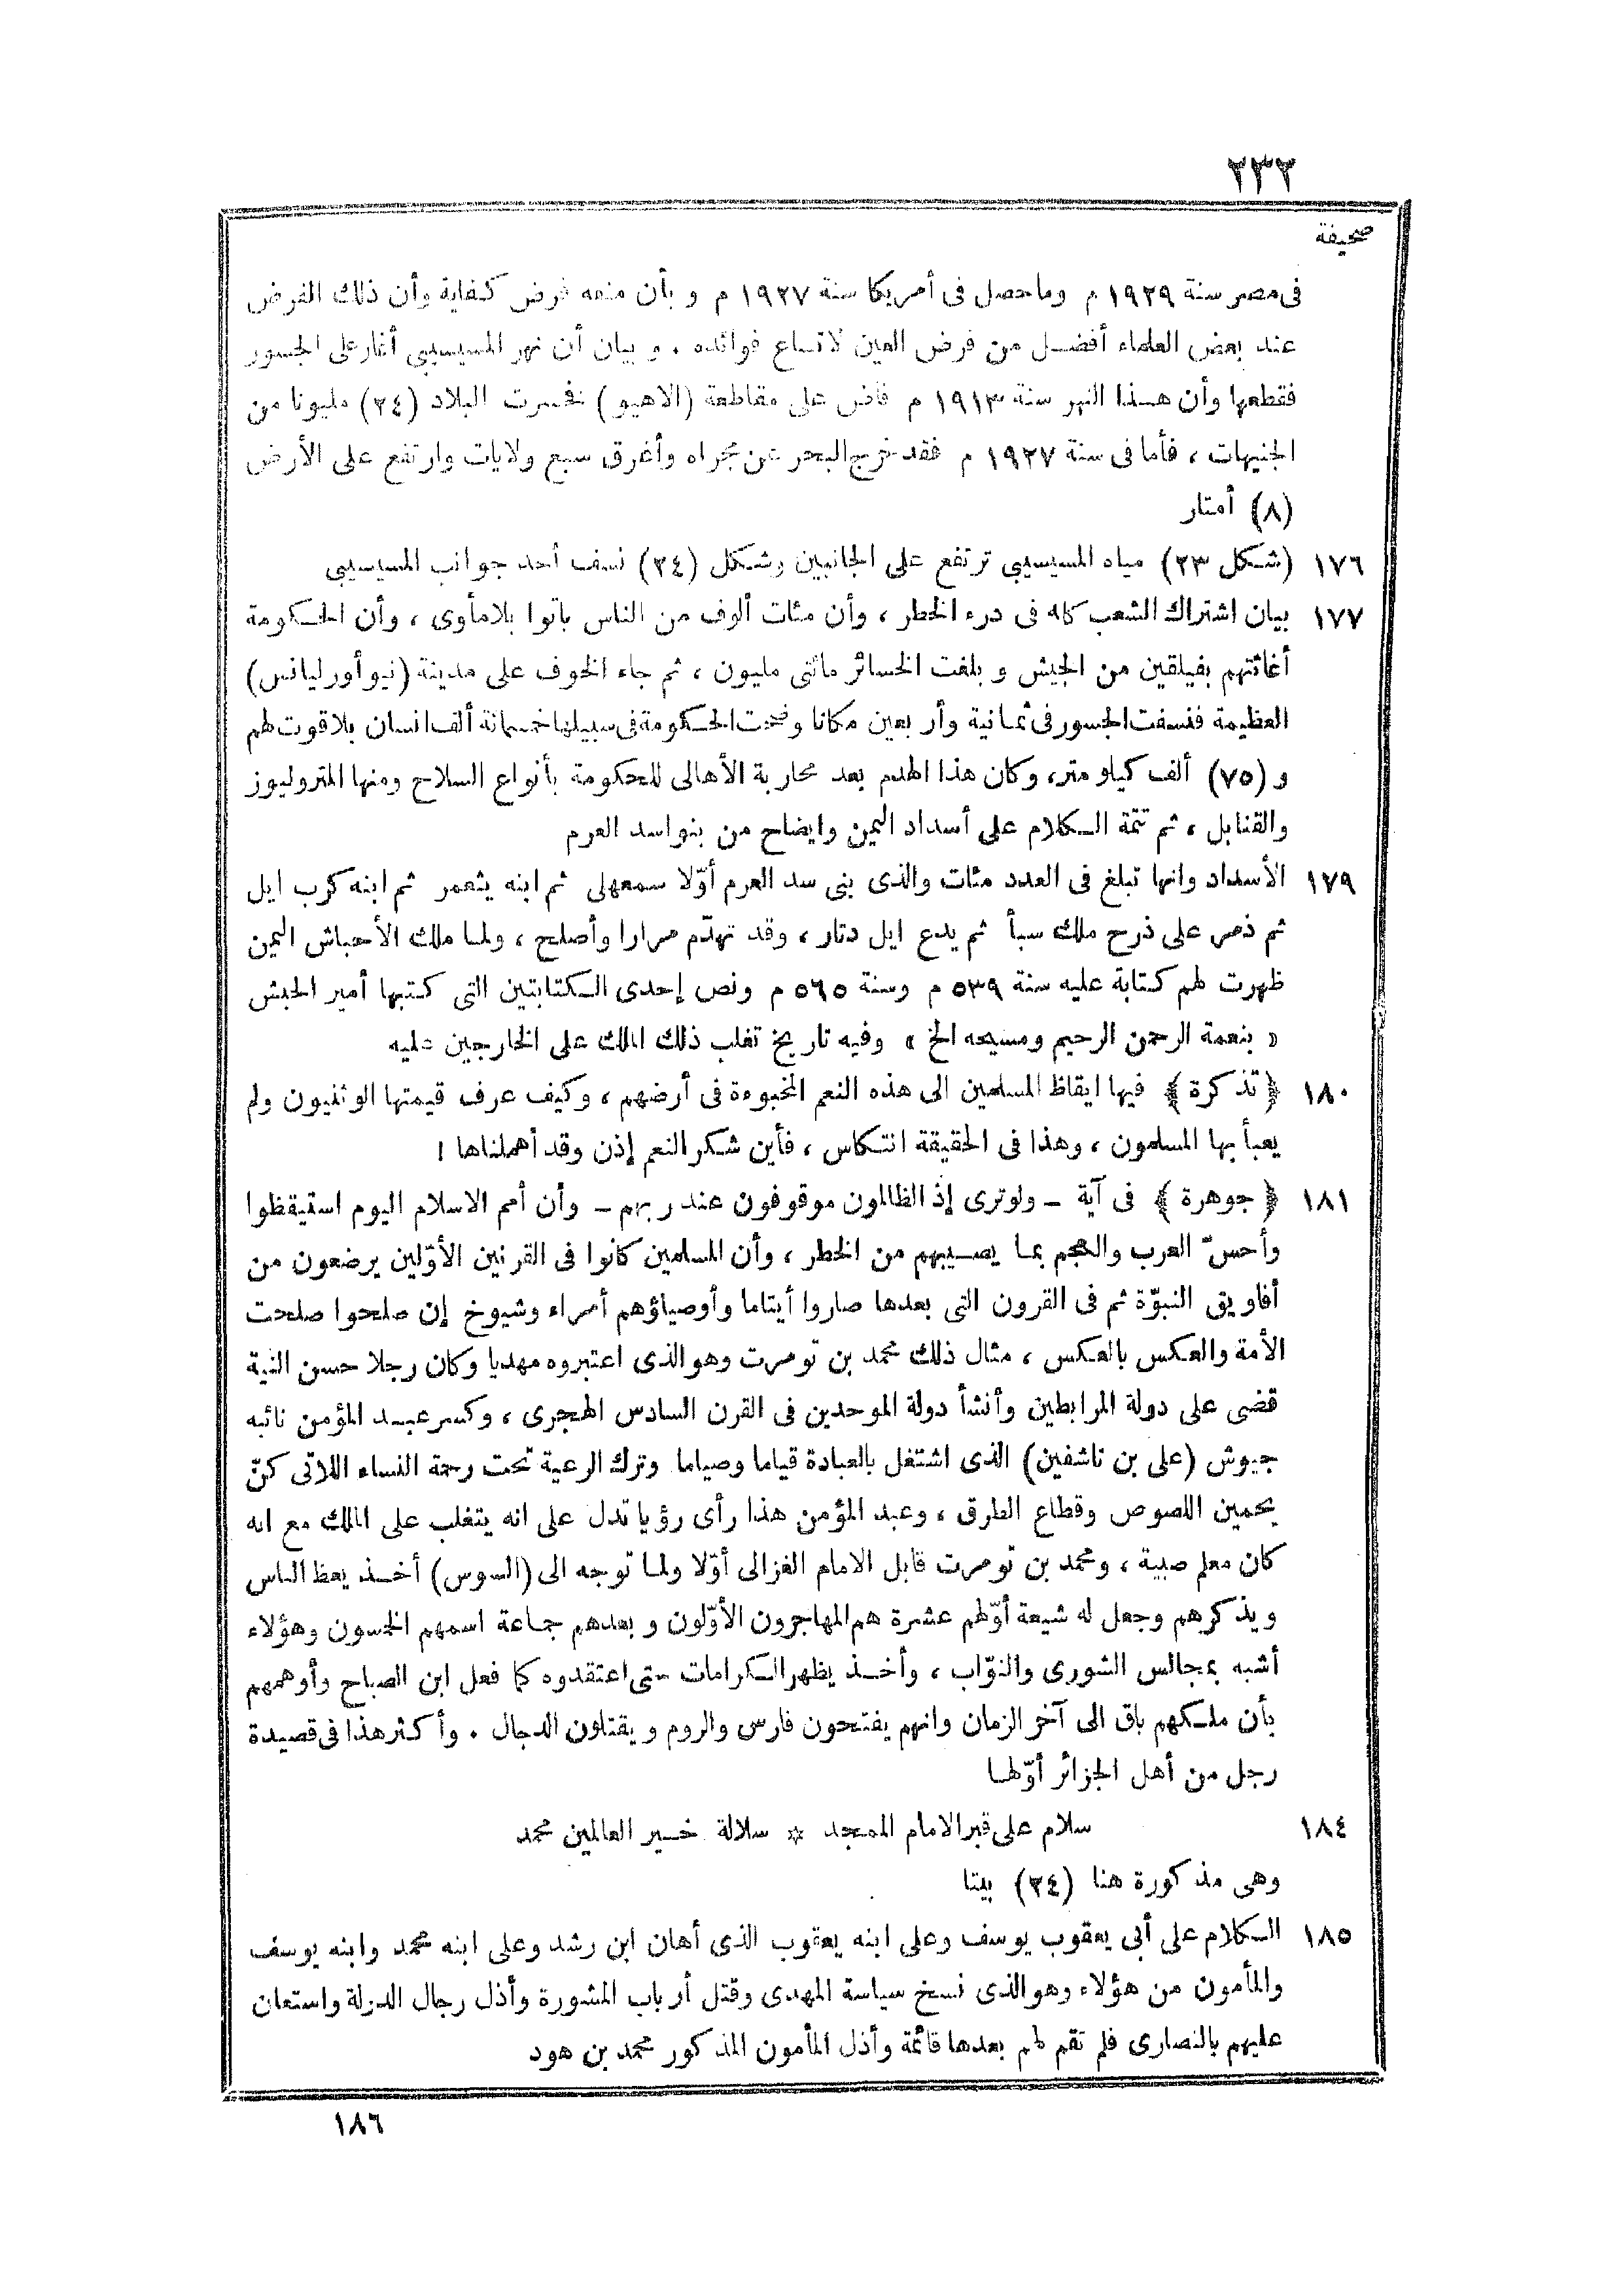 ٢٣٢
صحيفة
فى مصر سنة ١٩٢٩ م وماحصل فى أمريكا سنة ١٩٢٧ م وبأن منعه فرض كفاية وأن ذلك الفرض
عند بعض العلماء أفضل من فرض العين لاتساع فوائده . وبيان أن نهر المسيسيبى أغار على الجسور
فقطعها وأن هذا النهر سنة ١٩١٣ م فاض على مقاطعة (الاهيو) نخسرت البلاد (٢٤) مليونا من
الجنيهات ، فأما فى سنة ١٩٢٧ م فقد خرج البحر عن مجراه وأغرق سبع ولايات وارتفع على الأرض
(٨) أمتار
١٧٦ (شكل ٢٣) مياه المسيسيبى ترتفع على الجانبين وشكل (٢٤) نسف أحد جوانب المسيسيبى
١٧٧ بيان اشتراك الشعب كله فى درء الخطر ، وأن مئات ألوف من الناس باتوا بلامأوى ، وأن الحكومة
أغاثتهم بفيلقين من الجيش وبلغت الخسائر مائتى مليون ، ثم جاء الخوف على مدينة (نيوأورليانس)
العظيمة فنسفت الجسور فى ثمانية وأربعين مكانا وضحت الحكومة فى سبيلها خمسمائة ألف انسان بلاقوت لهم
و (٧٥) ألف كيلومتر، وكان هذا الهدم بعد محاربة الأهالى للحكومة بأنواع السلاح ومنها المتروليوز
والقنابل ، ثم تتمة الكلام على أسداد اليمن وايضاح من بنوا سد العرم
١٧٩ الأسداد وانها تبلغ فى العدد مئات والذى بنى سد العرم أوّلا سمعهلى ثم ابنه يثعمر ثم ابنه كرب ايل
ثم ذمر على ذرح ملك سبأ ثم يدع ايل دتار ، وقد تهدّم مرارا وأصلح ، ولما ملك الأحباش اليمن
ظهرت لهم كتابة عليه سنة ٥٣٩ م وسنة ٥٦٥ م ونص إحدى الكتابتين التى كتبها أمير الحبش
« بنعمة الرحمن الرحيم ومسيحه الخ » وفيه تاريخ تغلب ذلك الملك على الخارجين عليه
١٨٠ ﴿ تذكرة ﴾ فيها ايقاظ المسلمين الى هذه النعم المخبوءة فى أرضهم ، وكيف عرف قيمتها الوثنيون ولم
يعبأ بها المسلمون ، وهذا فى الحقيقة انتكاس ، فأين شكر النعم إذن وقد أهملناها !
١٨١ ﴿ جوهرة ﴾ فى آية ــ ولوترى إذ الظالمون موقوفون عند ربهم ــ وأن أمم الاسلام اليوم استيقظوا
وأحسّ العرب والعجم بما يصيبهم من الخطر ، وأن المسلمين كانوا فى القرنين الأوّلين يرضعون من
أفاويق النبوّة ثم فى القرون التى بعدها صاروا أيتاما وأوصياؤهم أمراء وشيوخ إن صلحوا صلحت
الأمة والعكس بالعكس ، مثال ذلك محمد بن تومرت وهو الذى اعتبروه مهديا وكان رجلا حسن النية
قضى على دولة المرابطين وأنشأ دولة الموحدين فى القرن السادس الهجرى ، وكسر عبد المؤمن نائبه
جيوش (على بن تاشفين) الذى اشتغل بالعبادة قياما وصياما وترك الرعية تحت رحمة النساء اللاتى كنّ
يحمين اللصوص وقطاع الطرق ، وعبد المؤمن هذا رأى رؤيا تدل على انه يتغلب على الملك مع انه
كان معلم صبية ، ومحمد بن تومرت قابل الامام الغزالى أوّلا ولما توجه الى (السوس) أخذ يعظ الناس
ويذكرهم وجعل له شيعة أوّلهم عشرة هم المهاجرون الأوّلون وبعدهم جماعة اسمهم الخمسون وهؤلاء
أشبه بمجالس الشورى والنوّاب ، وأخذ يظهر الكرامات حتى اعتقدوه كما فعل ابن الصباح وأوهمهم
بأن ملكهم باق الى آخر الزمان وانهم يفتحون فارس والروم ويقتلون الدجال . وأكثر هذا فى قصيدة
رجل من أهل الجزائر أوّلها
١٨٤ سلام على قبر الامام الممجد ☆ سلالة خير العالمين محمد
وهى مذكورة هنا (٢٤) بيتا
١٨٥ الكلام على أبى يعقوب يوسف وعلى ابنه يعقوب الذى أهان ابن رشد وعلى ابنه محمد وابنه يوسف
والمأمون من هؤلاء وهو الذى نسخ سياسة المهدى وقتل أرباب المشورة وأذل رجال الدولة واستعان
عليهم بالنصارى فلم تقم لهم بعدها قائمة وأذل المأمون المذكور محمد بن هود
١٨٦